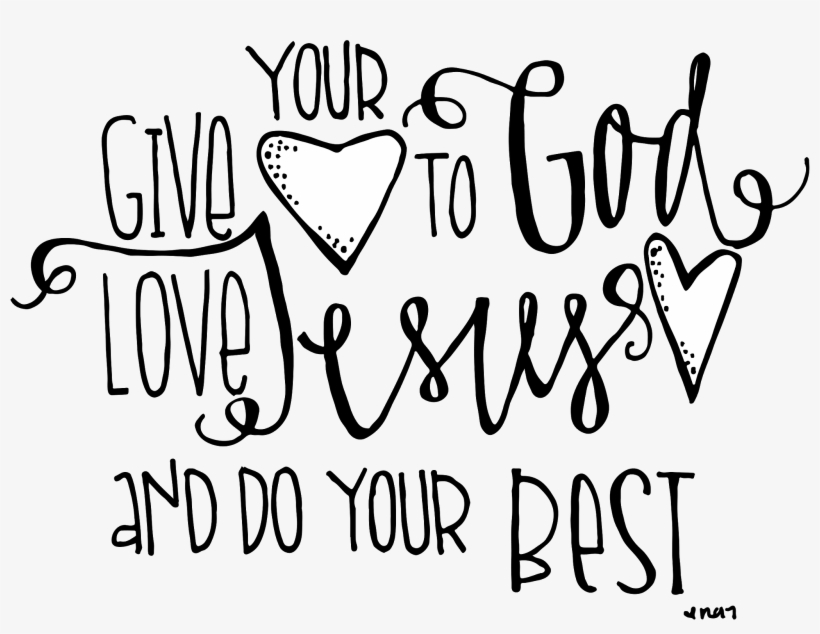 GIVE YOUR TO God
LOVE Jesus
aND DO YOUR BeST